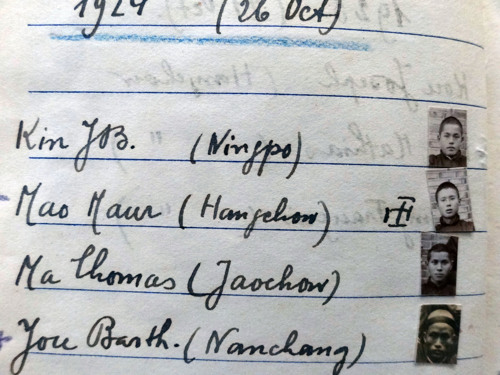 1924 (26 Oct)
Kin JB. (Ningpo)
Mao Maur (Hangchow)
Ma Thomas (Jaochow)
Jou Barth. (Nanchang)